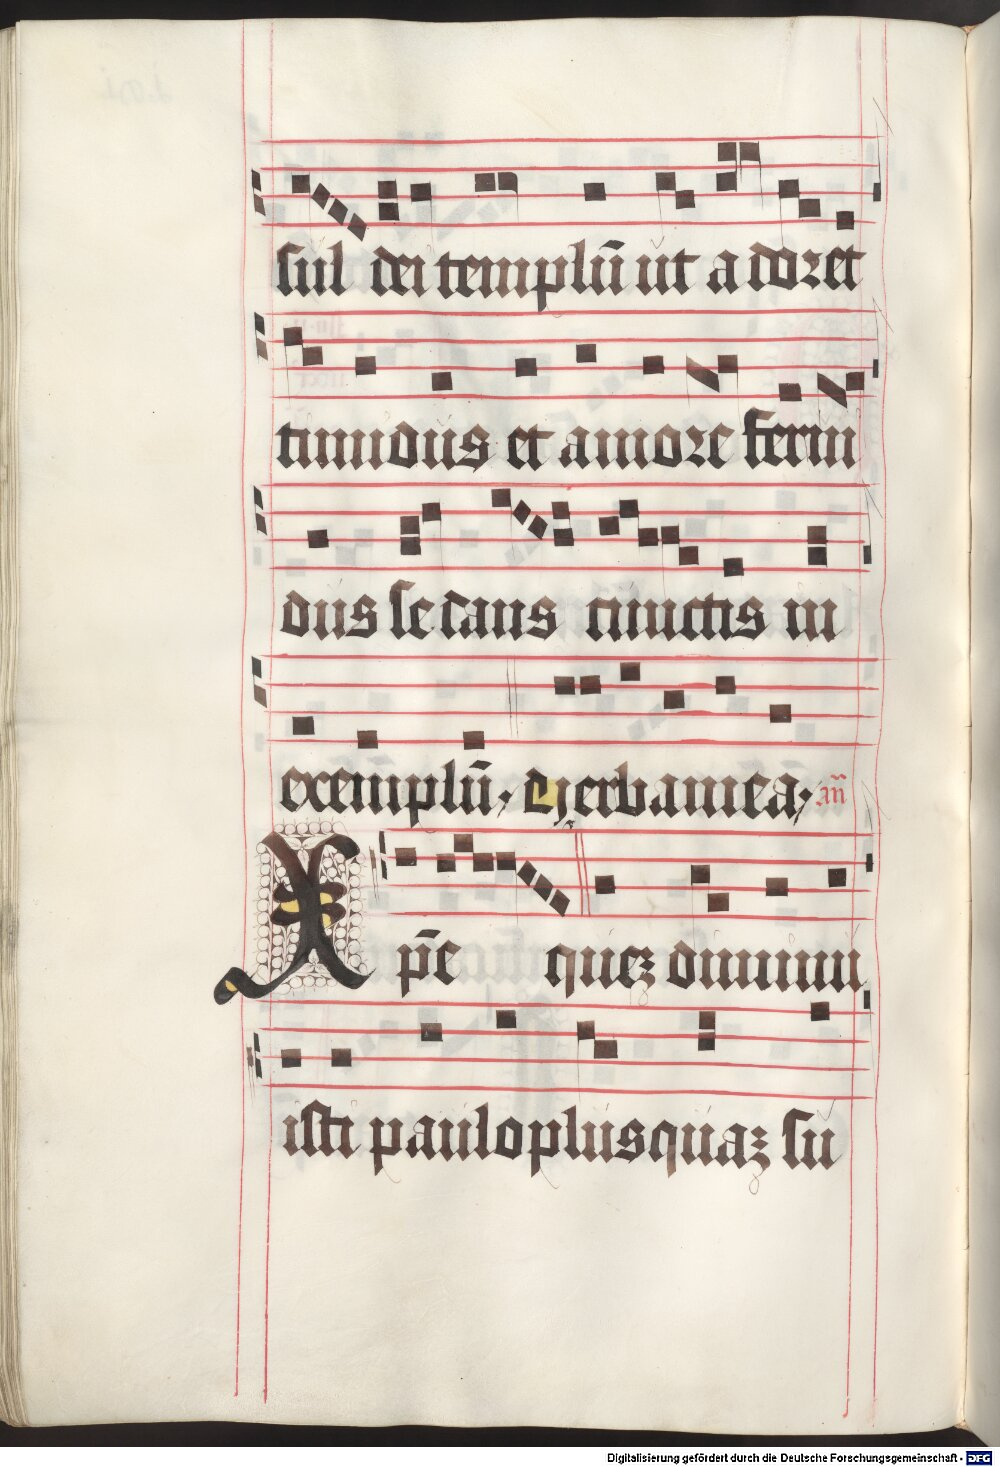 sul dei templū ut adoret
timidus et amore ferui
dus se dans cunctis in
exemplū, Uerba mea, an̄
Xp̄e quez dinumi
isti paulo plus quaz su
Digitalisierung gefördert durch die Deutsche Forschungsgemeinschaft - DFG